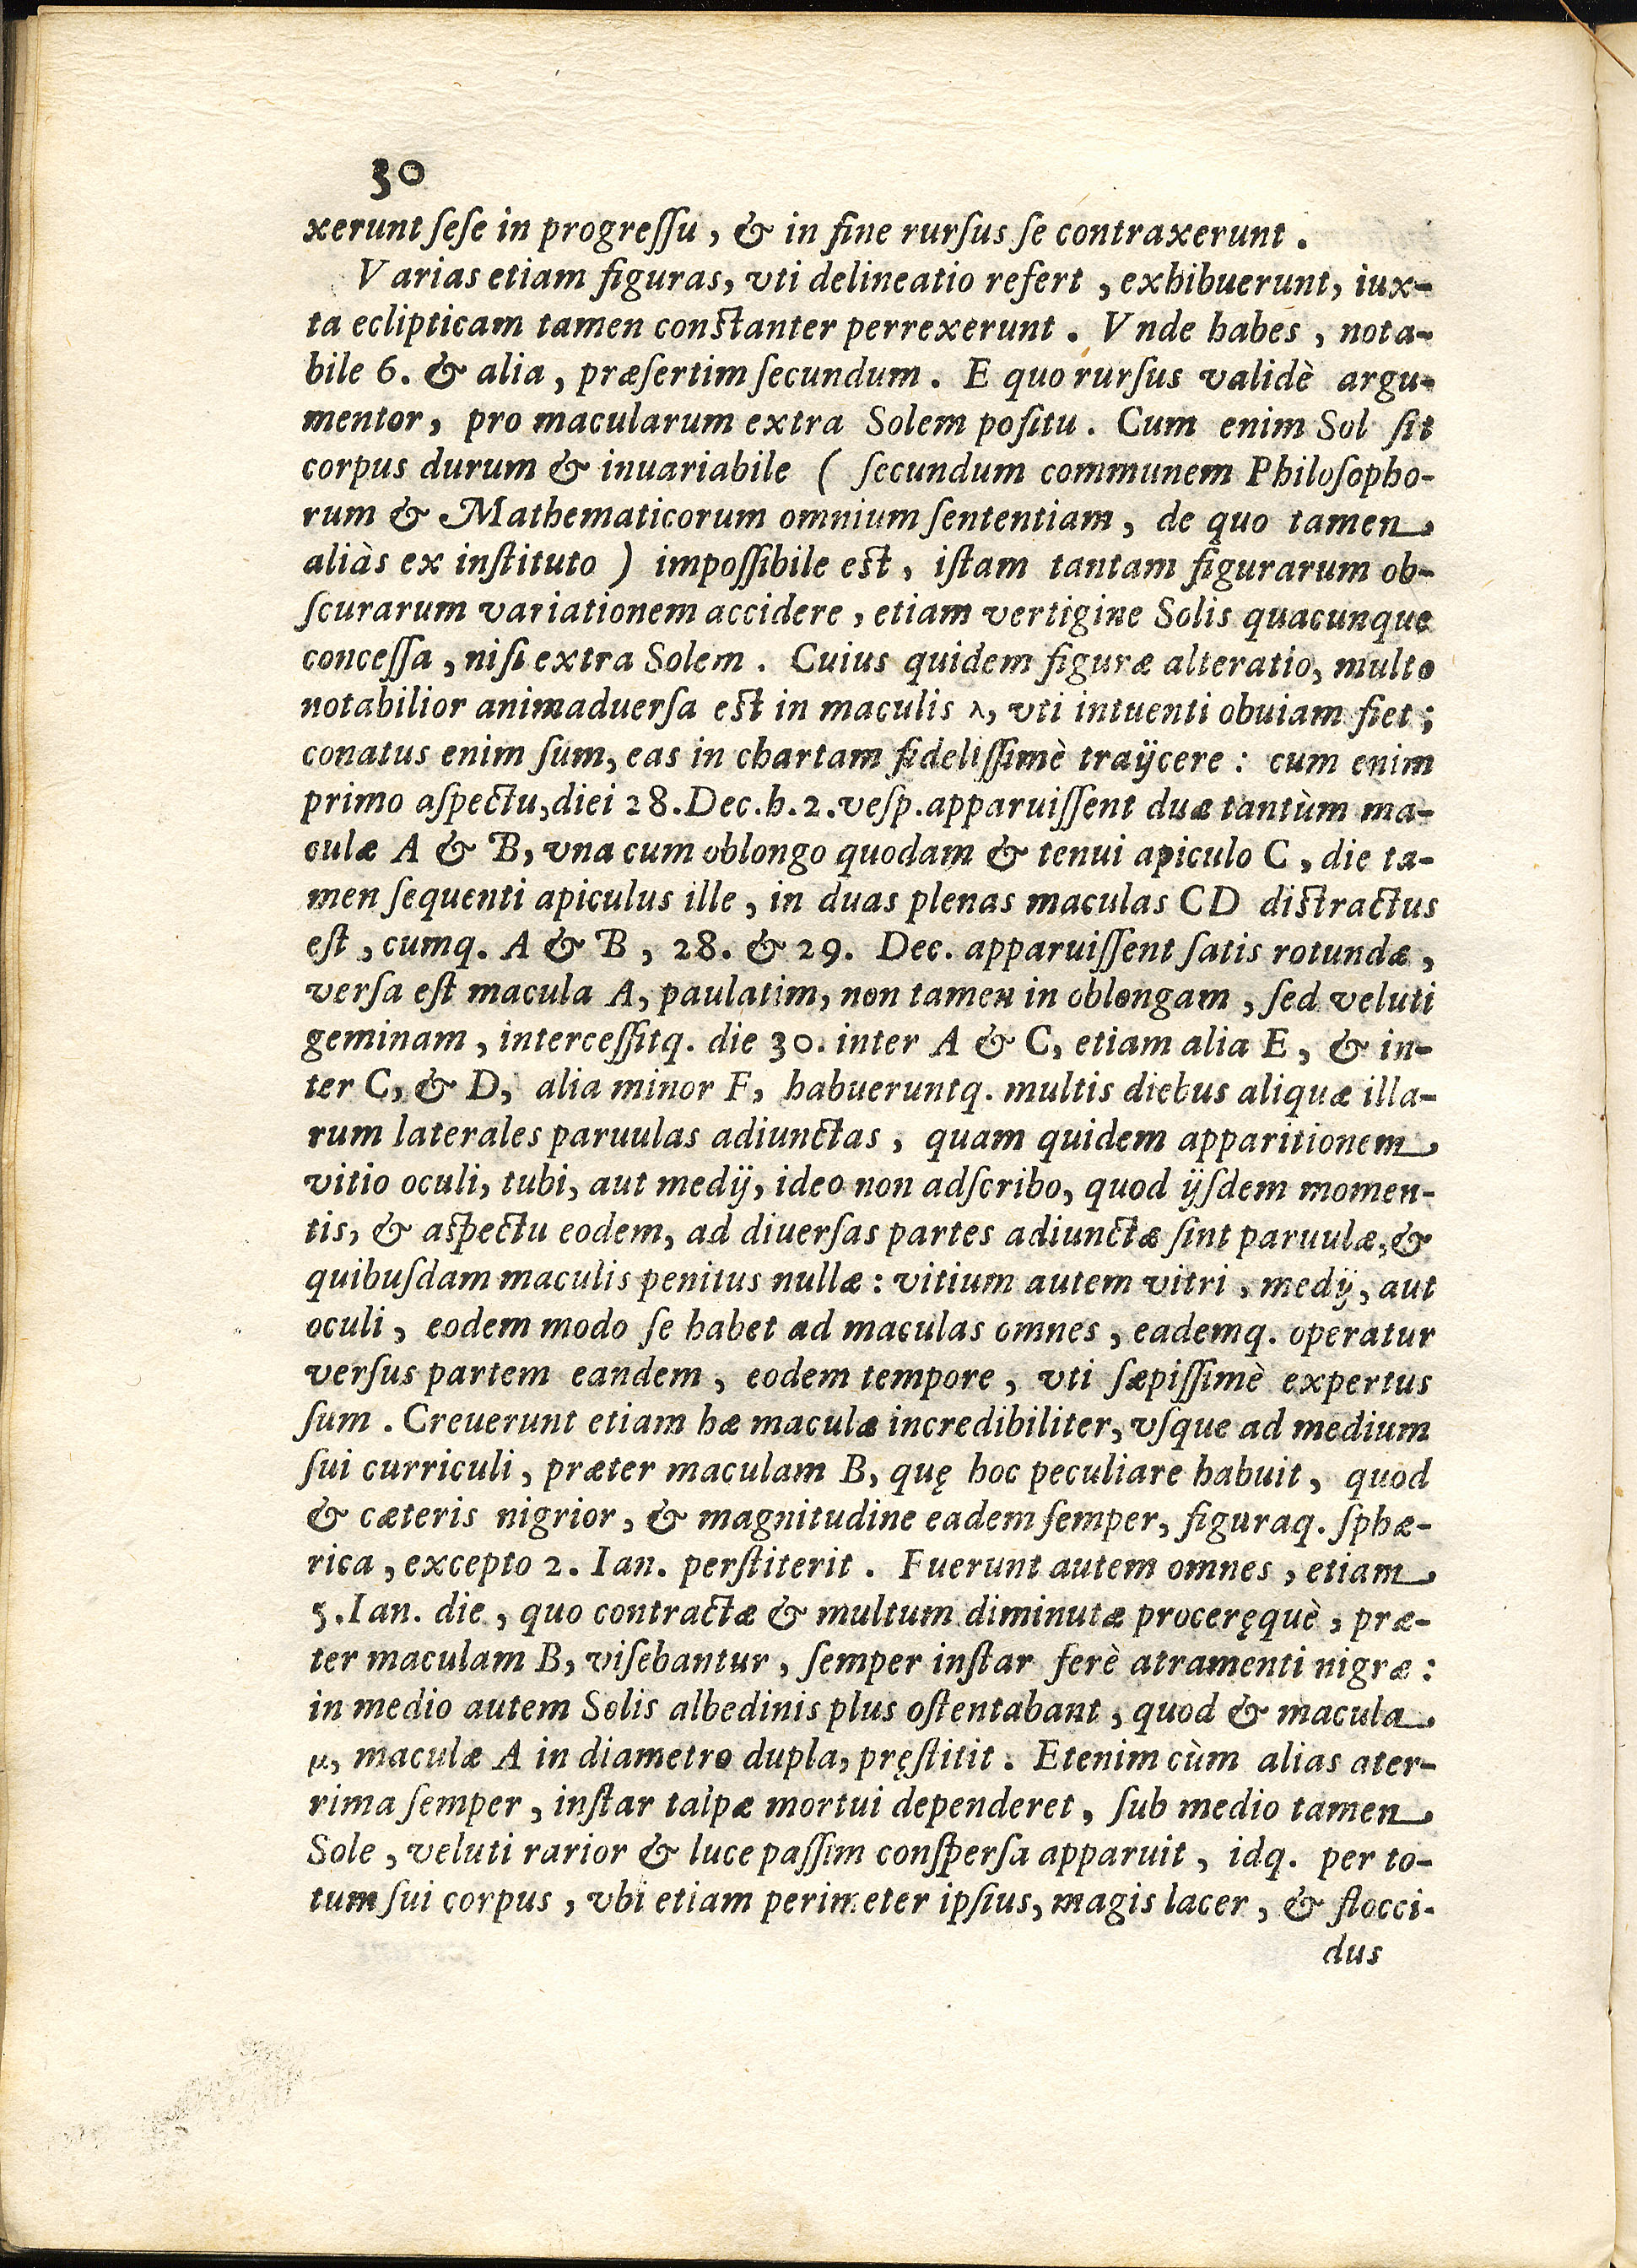 30
xerunt ſeſe in progreſſu, & in fine rurſus ſe contraxerunt.
Varias etiam figuras, vti delineatio refert, exhibuerunt, iux-
ta eclipticam tamen conſtanter perrexerunt. Vnde habes, nota-
bile 6. & alia, præſertim ſecundum. E quo rurſus validè argu-
mentor, pro macularum extra Solem poſitu. Cum enim Sol ſit
corpus durum & inuariabile (ſecundum communem Philoſopho-
rum & Mathematicorum omnium ſententiam, de quo tamen
aliàs ex inſtituto) impoſſibile eſt, iſtam tantam figurarum ob-
ſcurarum variationem accidere, etiam vertigine Solis quacunque
conceſſa, niſi extra Solem. Cuius quidem figuræ alteratio, multo
notabilior animaduerſa eſt in maculis λ, vti intuenti obuiam fiet;
conatus enim ſum, eas in chartam fideliſſimè traijcere: cum enim
primo aſpectu, diei 28. Dec. h. 2. veſp. apparuiſſent duæ tantùm ma-
culæ A & B, vna cum oblongo quodam & tenui apiculo C, die ta-
men ſequenti apiculus ille, in duas plenas maculas CD diſtractus
eſt, cumq. A & B, 28. & 29. Dec. apparuiſſent ſatis rotundæ,
verſa eſt macula A, paulatim, non tamen in oblongam, ſed veluti
geminam, interceſſitq. die 30. inter A & C, etiam alia E, & in-
ter C, & D, alia minor F, habueruntq. multis diebus aliquæ illa-
rum laterales paruulas adiunctas, quam quidem apparitionem
vitio oculi, tubi, aut medij, ideo non adſcribo, quod ijſdem momen-
tis, & aſpectu eodem, ad diuerſas partes adiunctæ ſint paruulæ, &
quibuſdam maculis penitus nullæ: vitium autem vitri, medij, aut
oculi, eodem modo ſe habet ad maculas omnes, eademq. operatur
verſus partem eandem, eodem tempore, vti ſæpiſſimè expertus
ſum. Creuerunt etiam hæ maculæ incredibiliter, vſque ad medium
ſui curriculi, præter maculam B, quę hoc peculiare habuit, quod
& cæteris nigrior, & magnitudine eadem ſemper, figuraq. ſphæ-
rica, excepto 2. Ian. perſtiterit. Fuerunt autem omnes, etiam
5. Ian. die, quo contractæ & multum diminutæ proceręquè, præ-
ter maculam B, viſebantur, ſemper inſtar ferè atramenti nigræ:
in medio autem Solis albedinis plus oſtentabant, quod & macula
μ, maculæ A in diametro dupla, pręſtitit. Etenim cùm alias ater-
rima ſemper, inſtar talpæ mortui dependeret, ſub medio tamen
Sole, veluti rarior & luce paſſim conſperſa apparuit, idq. per to-
tum ſui corpus, vbi etiam perimeter ipſius, magis lacer, & flocci-
dus